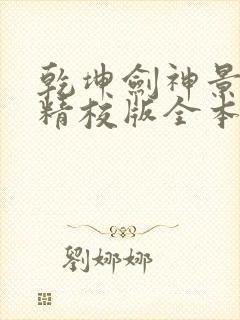 乾坤劍神景
精校版全本
劉娜娜